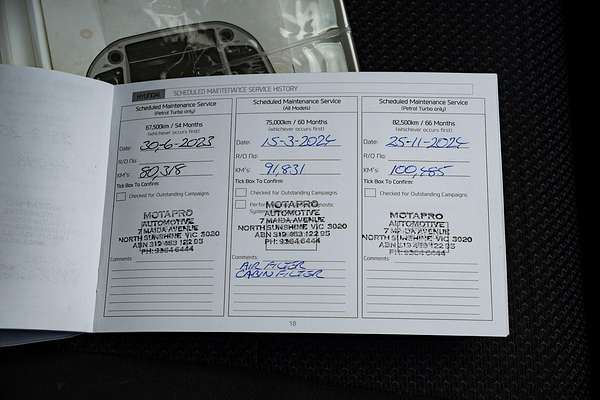 HYUNDAI SCHEDULED MAINTENANCE SERVICE HISTORY
Scheduled Maintenance Service
(Petrol Turbo only)
67,500km / 54 Months
(whichever occurs first)
Date: 30-6-2023
R/O No:
KM's: 80,318
Tick Box To Confirm:
Checked for Outstanding Campaigns
MOTAPRO
AUTOMOTIVE
7 MAIDA AVENUE
NORTH SUNSHINE VIC 3020
ABN 319 483 122 95
PH: 9364 6444
Comments:
Scheduled Maintenance Service
(All Models)
75,000km / 60 Months
(whichever occurs first)
Date: 15-3-2024
R/O No:
KM's: 91,831
Tick Box To Confirm:
Checked for Outstanding Campaigns
MOTAPRO
AUTOMOTIVE
7 MAIDA AVENUE
NORTH SUNSHINE VIC 3020
ABN 319 483 122 95
PH: 9364 6444
Comments:
AIR FILTER
CABIN FILTER
Scheduled Maintenance Service
(Petrol Turbo only)
82,500km / 66 Months
(whichever occurs first)
Date: 25-11-2024
R/O No:
KM's: 100,485
Tick Box To Confirm:
Checked for Outstanding Campaigns
MOTAPRO
AUTOMOTIVE
7 MAIDA AVENUE
NORTH SUNSHINE VIC 3020
ABN 319 483 122 95
PH: 9364 6444
Comments:
18